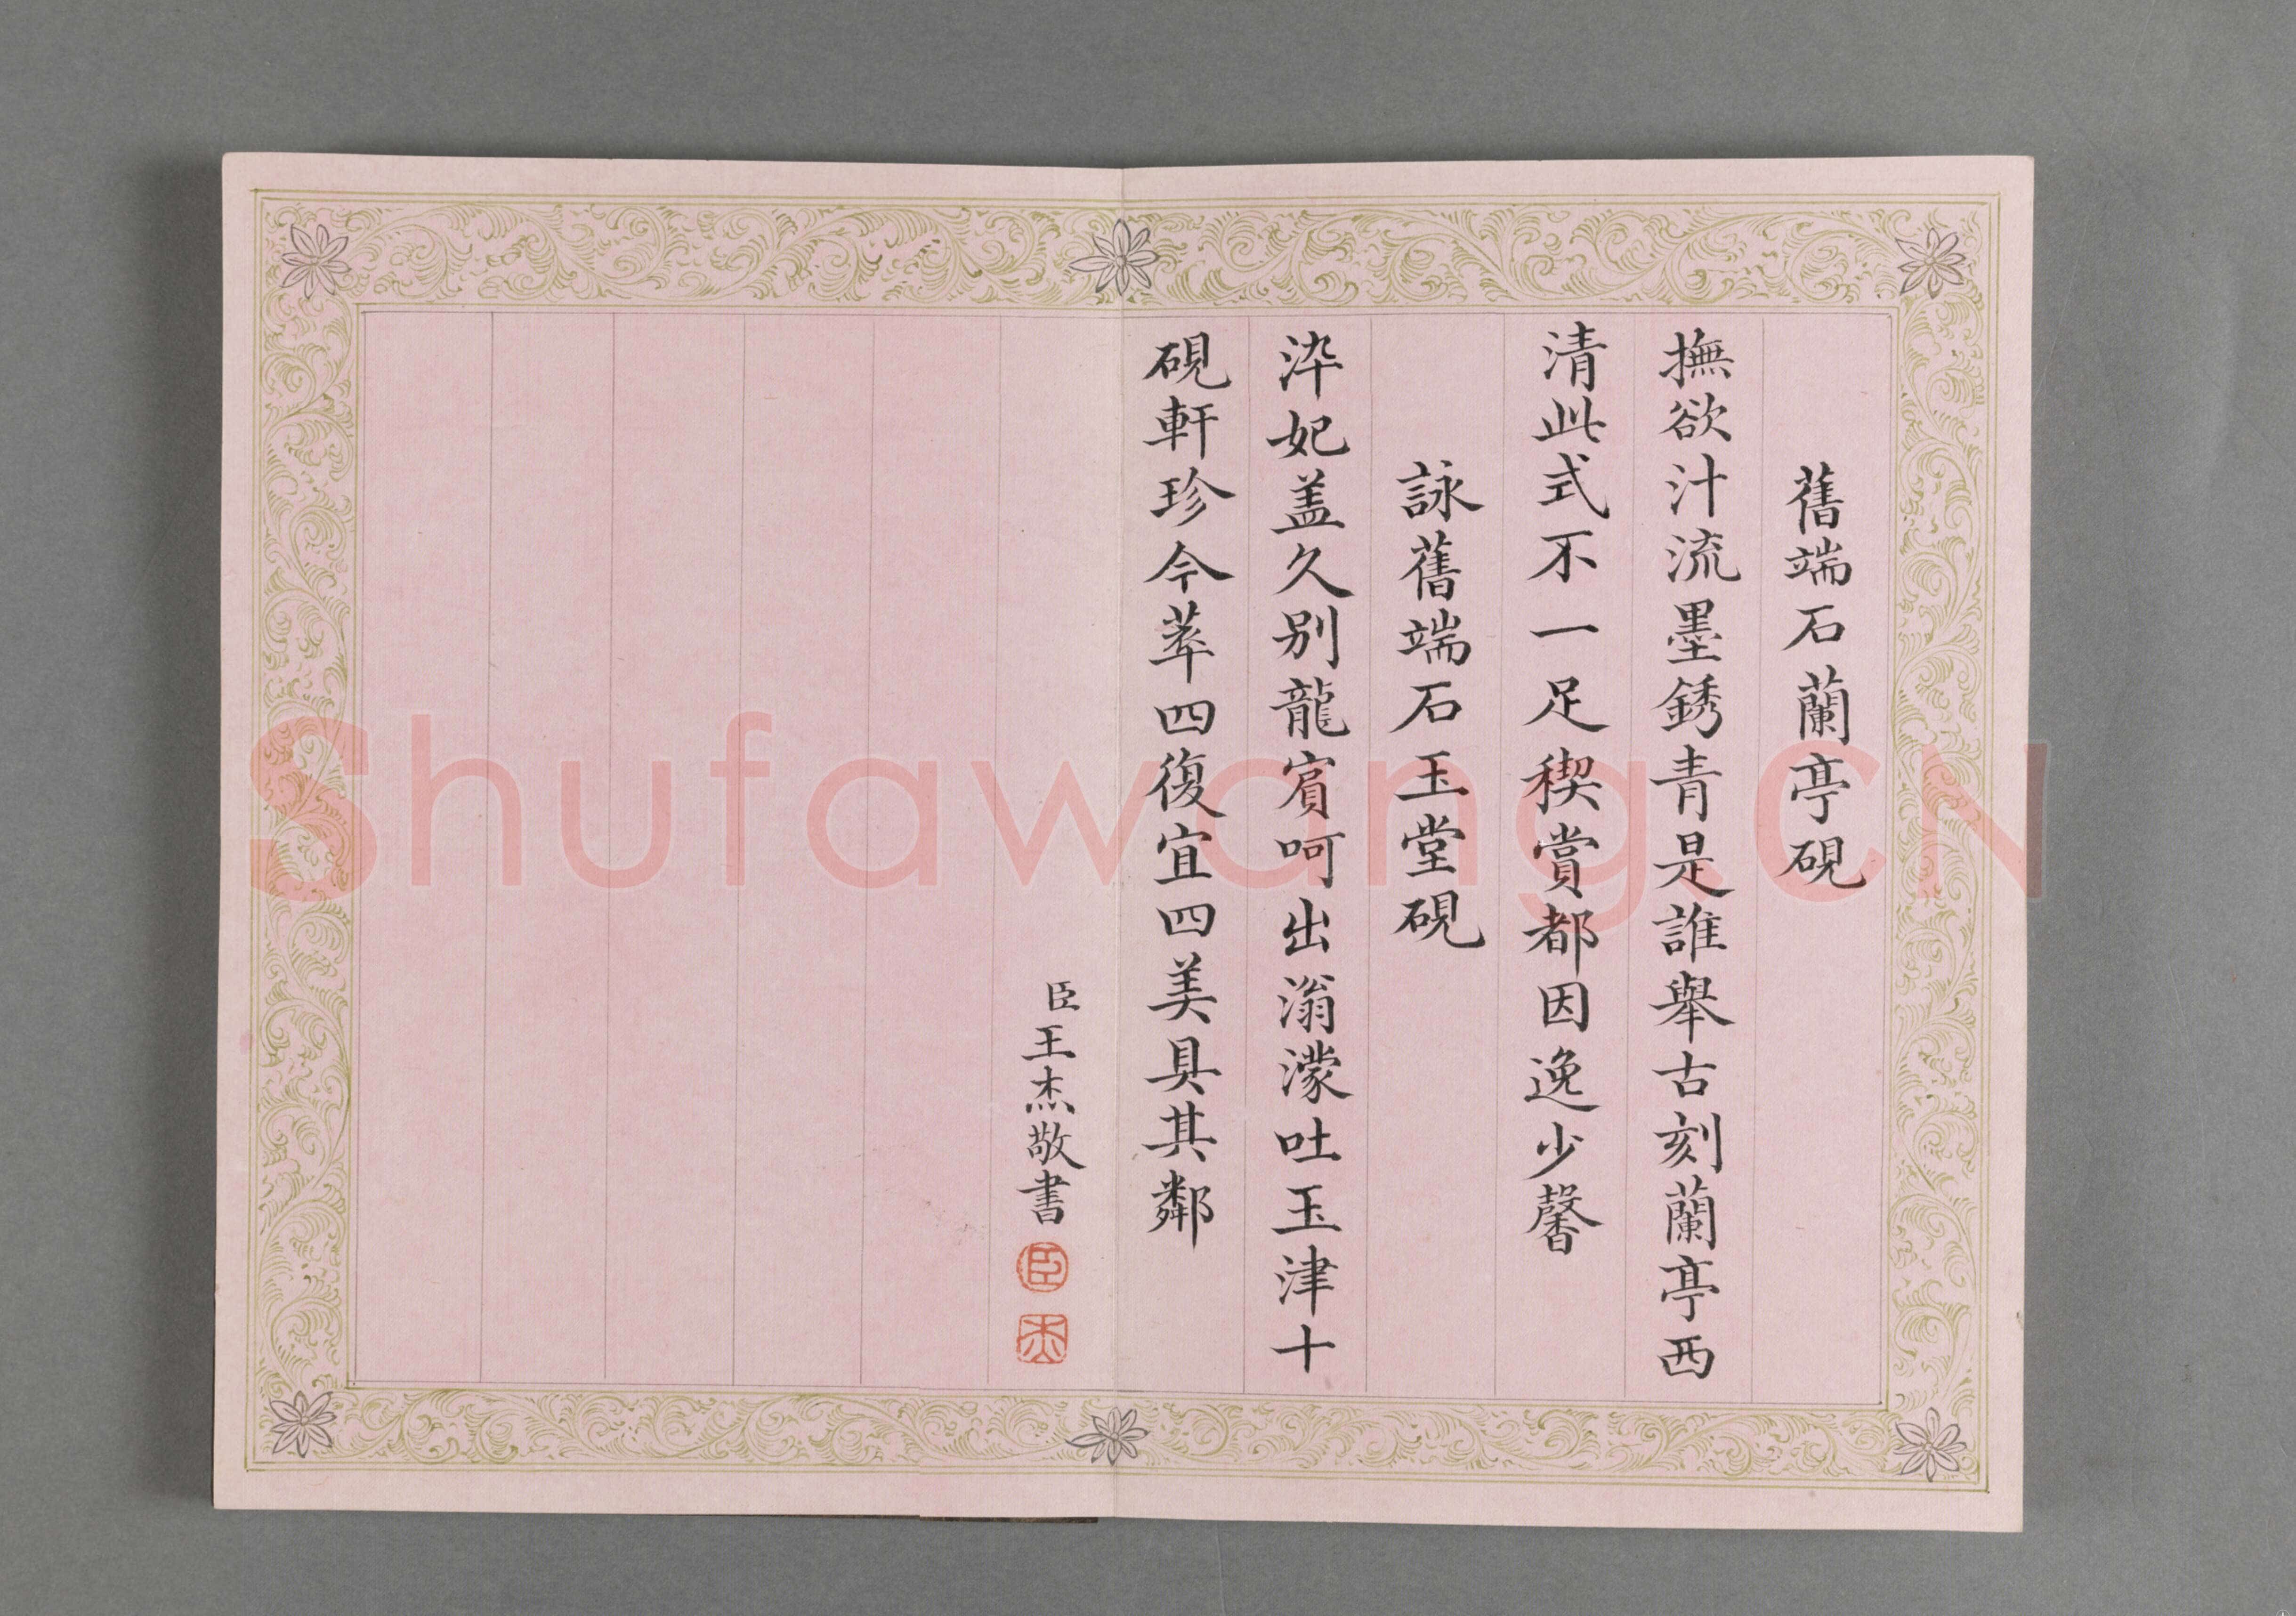 舊端石蘭亭硯
撫欲汁流墨銹青是誰舉古刻蘭亭西
清此式不一足稧賞都因逸少馨
詠舊端石玉堂硯
淬妃盖久别龍賔呵出滃濛吐玉津十
硯軒珍今萃四復宜四美具其鄰
臣王杰敬書
臣
杰
Shufawang.CN